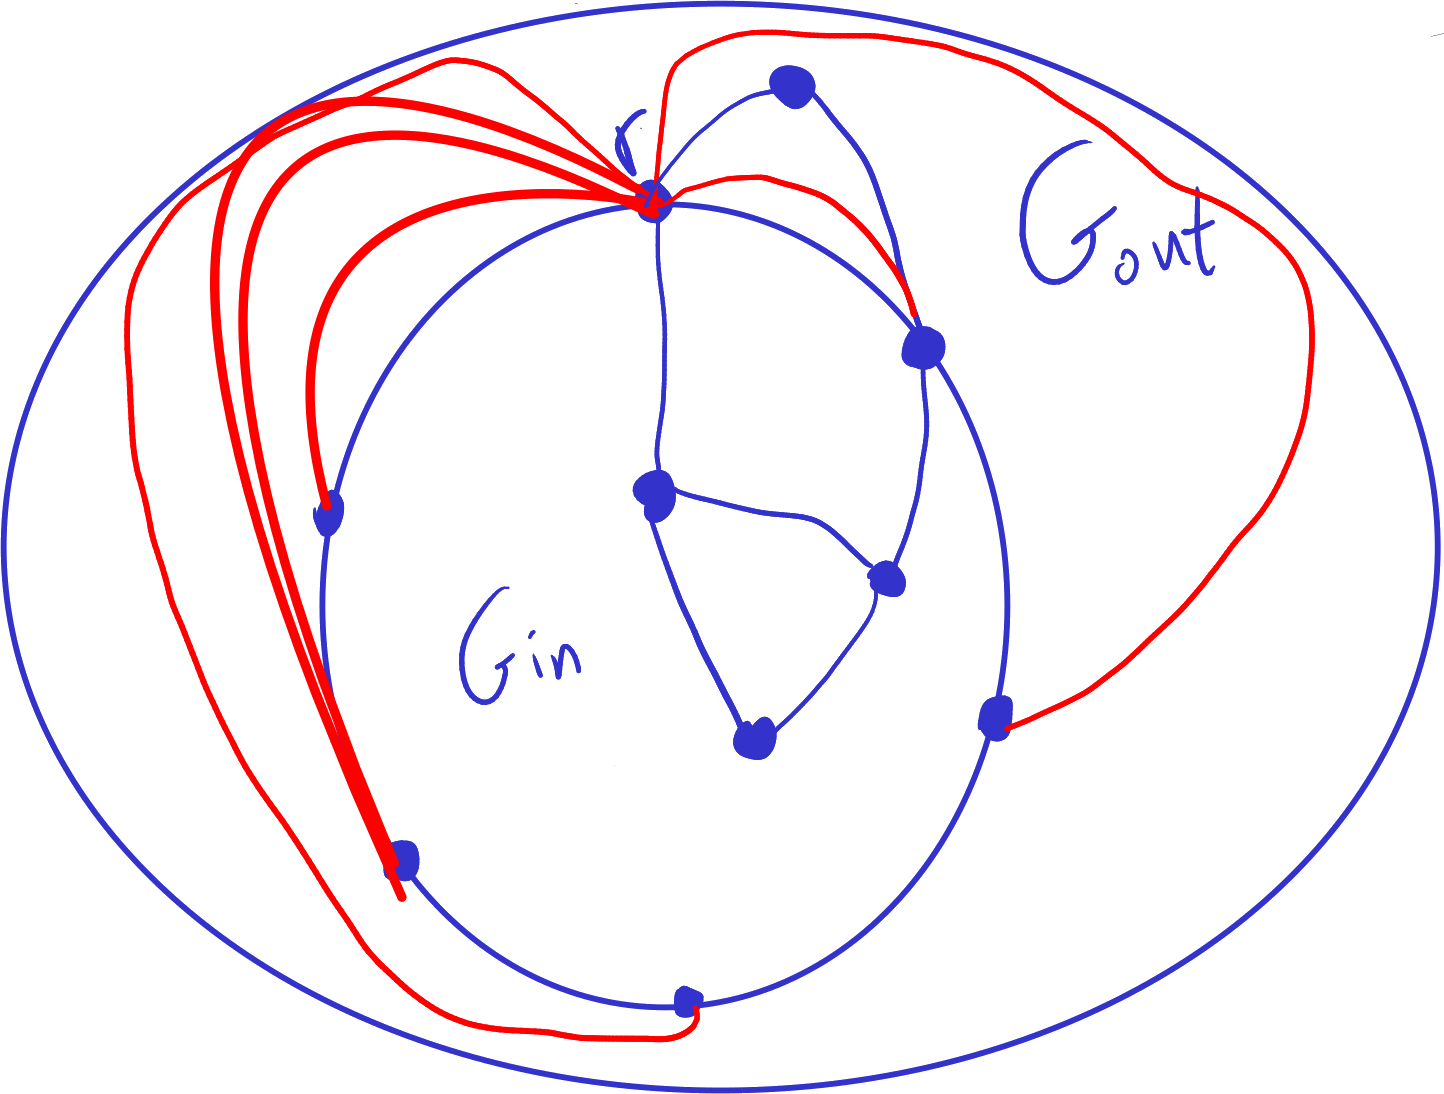 r
Gout
Gin